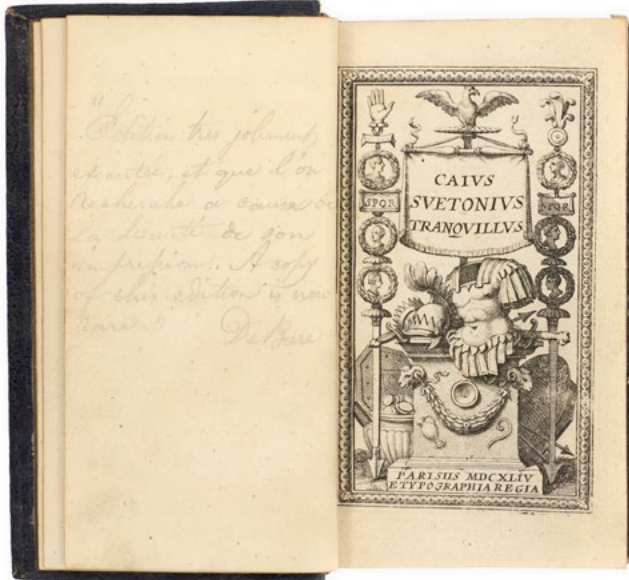 "Edition très joliment
executée, et que l'on
recherche a cause de
la beauté de son
impression. A copy
of this edition is now
rare" De Bure
CAIVS
SVETONIVS
TRANQVILLVS
SPQR
SPQR
PARISIIS MDCXLIV
E TYPOGRAPHIA REGIA